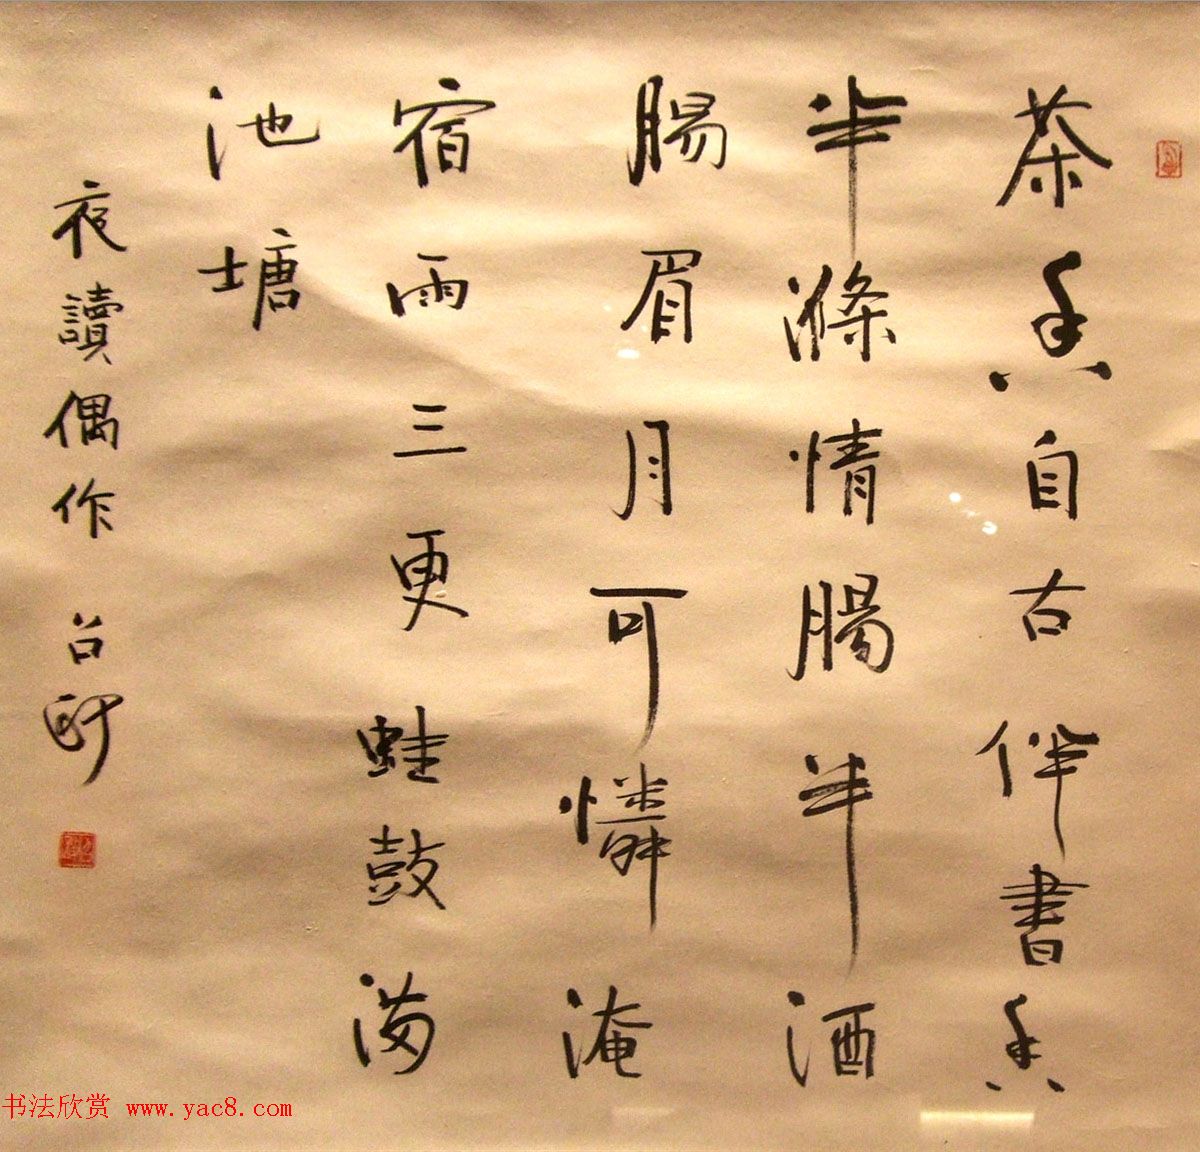 茶香自古伴書香
半滌情腸半酒
腸眉月可憐淹
宿雨三更蛙鼓满
池塘
夜讀偶作
书法欣赏 www.yac8.com